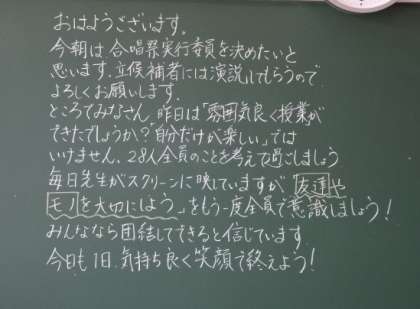 おはようございます。
今朝は合唱祭実行委員を決めたいと
思います。立候補者には演説してもらうので
よろしくお願いします。
ところでみなさん、昨日は「雰囲気良く授業」が
できたでしょうか？「自分だけが楽しい」では
いけません、28人全員のことを考えて過ごしましょう
毎日先生がスクリーンに映していますが「友達や
モノを大切にしよう」をもう一度全員で意識しましょう！
みんななら団結してできると信じています。
今日も1日、気持ち良く笑顔で終えよう！